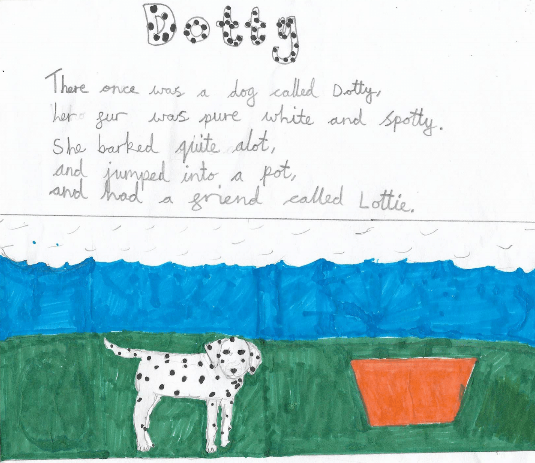 Dotty
There once was a dog called Dotty,
her fur was pure white and spotty.
She barked quite alot,
and jumped into a pot,
and had a friend called Lottie.